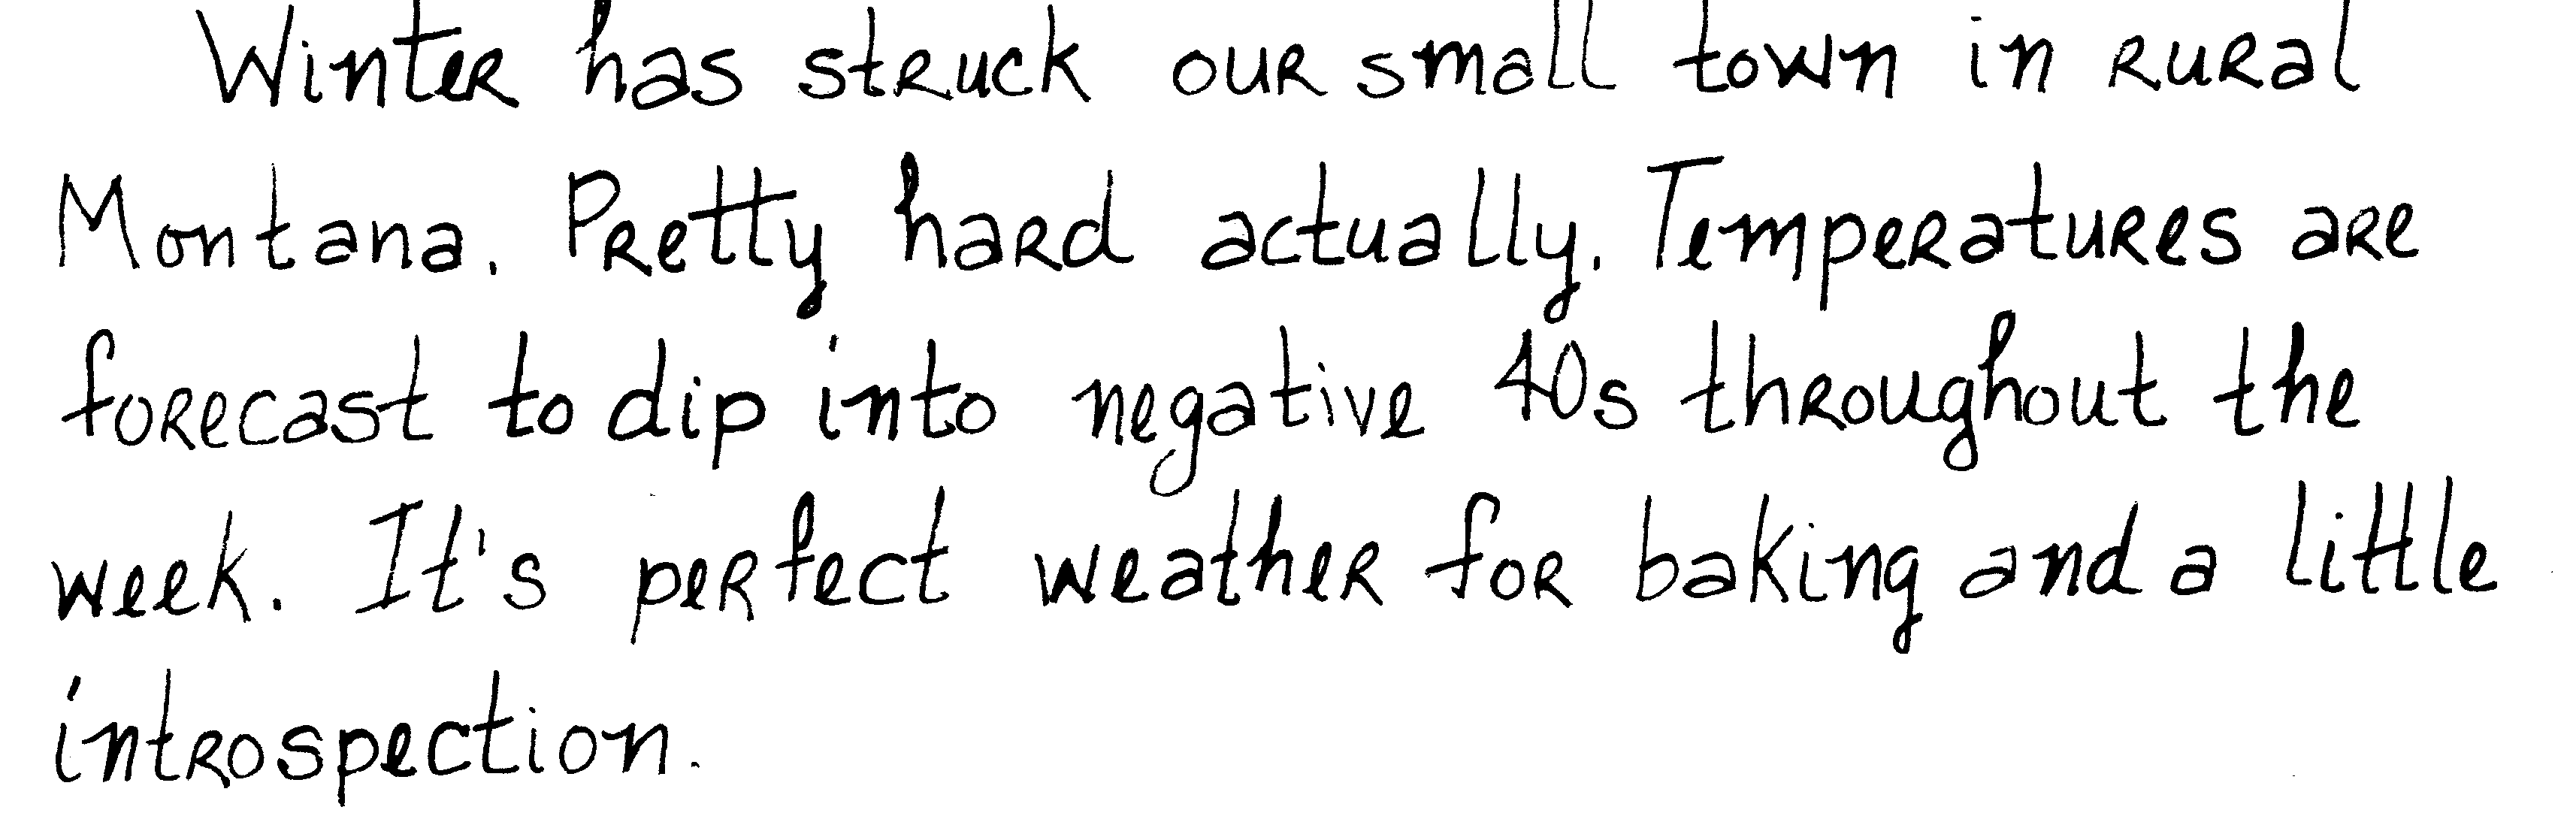 Winter has struck our small town in rural
Montana. Pretty hard actually. Temperatures are
forecast to dip into negative 40s throughout the
week. It's perfect weather for baking and a little
introspection.